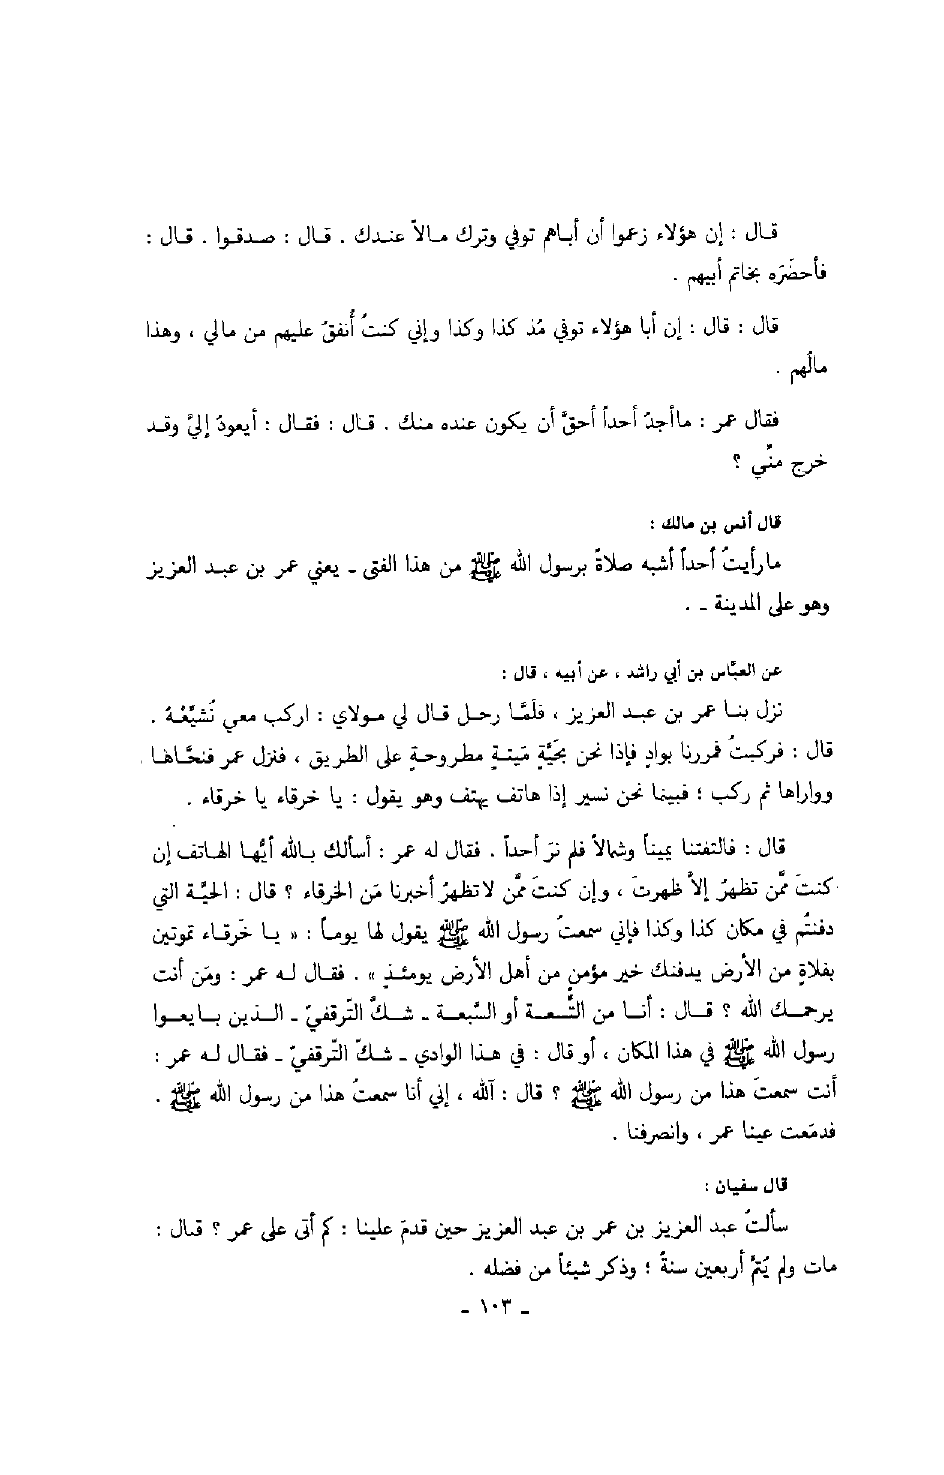 قال : إن هؤلاء زعموا أن أباهم توفي وترك مالاً عندك . قال : صدقوا . قال :
فأحضَرَه بخاتم أبيهم .
قال : قال : إن أبا هؤلاء توفي مُذ كذا وكذا وإني كنتُ أُنفقُ عليهم من مالي ، وهذا
مالُهم .
فقال عمر : ماأجدُ أحداً أحقَّ أن يكون عنده منك . قال : فقال : أيعودُ إليَّ وقد
خرج منِّي ؟
قال أنس بن مالك :
مارأيتُ أحداً أشبه صلاةً برسول الله ﷺ من هذا الفتى ـ يعني عمر بن عبد العزيز
وهو على المدينة ـ .
عن العبَّاس بن أبي راشد ، عن أبيه ، قال :
نزل بنا عمر بن عبد العزيز ، فلَمَّا رحل قال لي مولاي : اركب معي نُشيِّعْهُ .
قال : فركبتُ فمررنا بوادٍ فإذا نحن بحَيَّةٍ مَيتةٍ مطروحةٍ على الطريق ، فنزل عمر فنحَّاها
وواراها ثم ركب ؛ فبينما نحن نسير إذا هاتف يهتف وهو يقول : يا خرقاء يا خرقاء .
قال : فالتفتنا يميناً وشمالاً فلم نرَ أحداً . فقال له عمر : أسألك بالله أيُّها الهاتف إن
كنتَ ممَّن تظهرُ إلاَّ ظهرتَ ، وإن كنتَ ممَّن لاتظهرُ أخبرنا مَن الخرقاء ؟ قال : الحيَّة التي
دفنتُم في مكان كذا وكذا فإني سمعتُ رسول الله ﷺ يقول لها يوماً : « يا خَرقاء تموتين
بفلاةٍ من الأرض يدفنك خير مؤمنٍ من أهل الأرض يومئذٍ » . فقال له عمر : ومَن أنت
يرحمك الله ؟ قال : أنا من التِّسعة أو السَّبعة ـ شكَّ التّرقفيّ ـ الذين بايعوا
رسول الله ﷺ في هذا المكان ، أو قال : في هذا الوادي ـ شكّ التّرقفيّ ـ فقال له عمر :
أنت سمعتَ هذا من رسول الله ﷺ ؟ قال : آلله ، إني أنا سمعتُ هذا من رسول الله ﷺ .
فدمَعت عينا عمر ، وانصرفنا .
قال سفيان :
سألتُ عبد العزيز بن عمر بن عبد العزيز حين قدمَ علينا : كم أتى على عمر ؟ قال :
مات ولم يُتمَّ أربعين سنةً ؛ وذكر شيئاً من فضله .
ـ ١٠٣ ـ